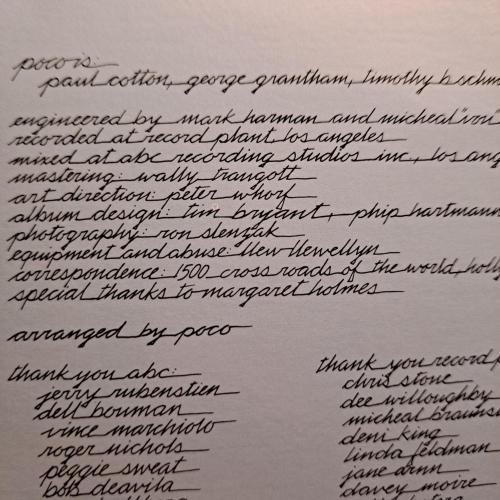 poco is:
paul cotton, george grantham, timothy b. schm
engineered by mark harman and micheal
recorded at record plant, los angeles
mixed at abc recording studios inc., los ang
mastering: wally traugott
art direction: peter whorf
album design: tim bryant, phip hartmann
photography: ron slenzak
equipment and abuse: llew llewellyn
correspondence: 1500 cross roads of the world, holly
special thanks to margaret holmes
arranged by poco
thank you abc:
jerry rubenstien
dell bowman
vince marchiolo
roger nichols
peggie sweat
bob deavila
thank you record p
chris stone
dee willoughby
micheal brauns
deni king
linda feldman
jane ann
davey moire